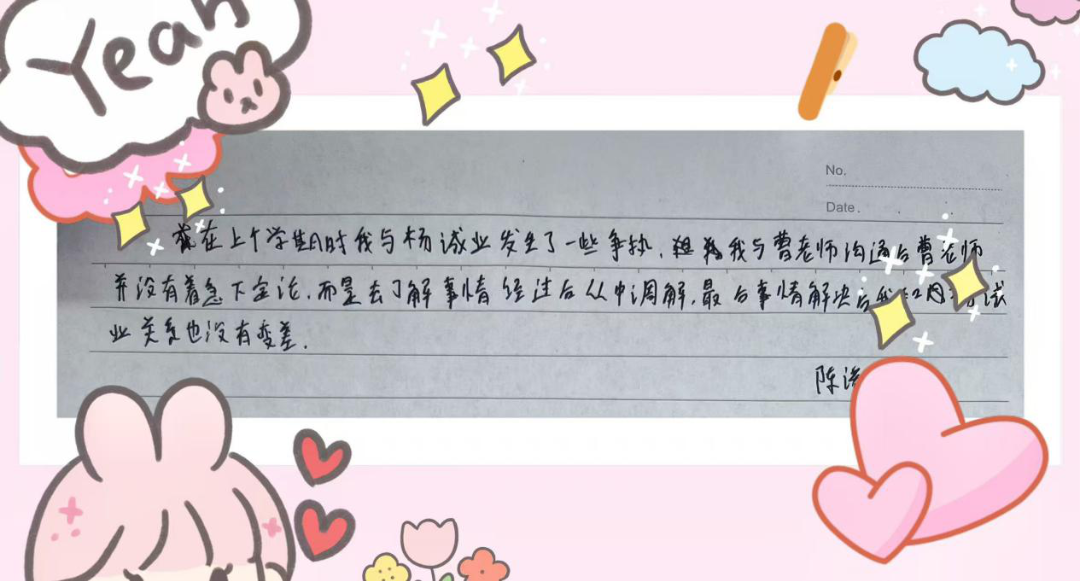 Yeah
No.
Date.
在上个学期时我与杨诚业发生了一些争执，我与曹老师沟通后曹老师
并没有着急下定论，而是去了解事情经过后从中调解，最后事情解决后我
业关系也没有变差。
陈